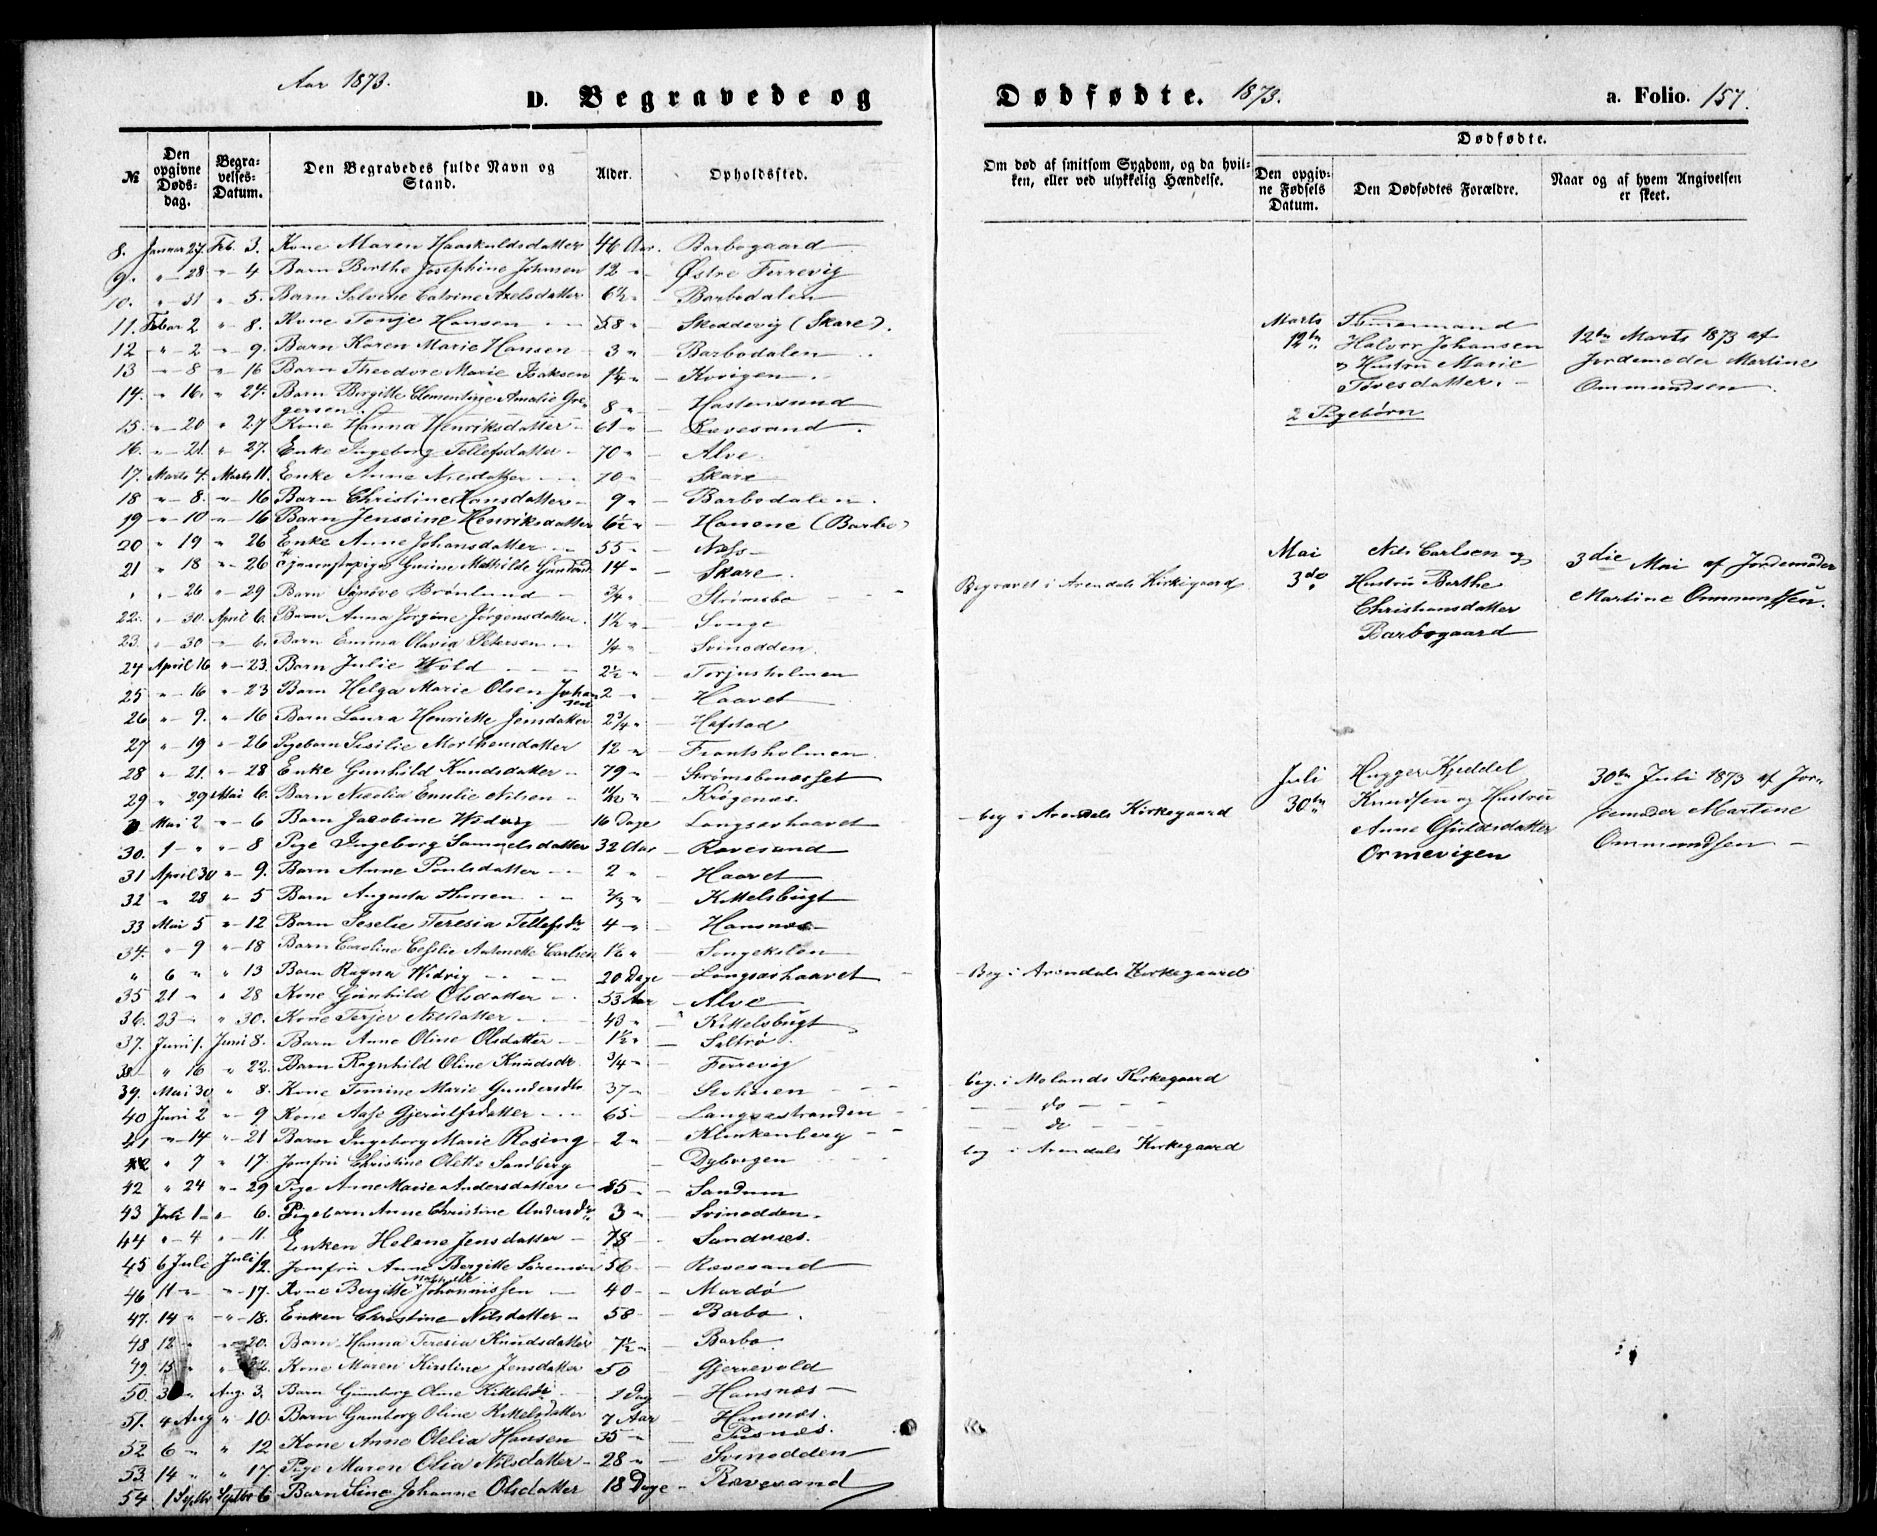 Aar 1873.
D. Begravede og
№
Den opgivne Dødsdag.
Begravelses-Datum.
Den Begravedes fulde Navn og Stand.
Alder.
Opholdssted.
8. Januar 27. Feb. 3. Kone Maren Haaskuldsdatter 46 Aar. Barbogaard
9. " - 28 " - 4 Barn Berthe Josephine Johnsen 12 " - Østre Færrevig
10. " - 31 " - 5. Barn Salvine Catrine Axelsdatter 6½ " - Barbodalen
11. Febar 2 " - 8. Kone Tonje Hansen - - 58 " - Skoddevig (Skare).
12 " - 2 " - 9. Barn Karen Marie Hansen - 3 " - Barbodalen
13 " - 8 " - 16 Barn Theodore Marie Isaksen 1¼ " - Kvigen
14. " - 16. " - 24. Barn Bergitte Clementine Amalie Gregersen. 8 " - Hastensund
15. " - 20 " - 27 Kone Hanna Henriksdatter - 61 " - Rævesand
16. " - 21. " - 27. Enke Ingeborg Tellefsdatter - 70 " - Alve.
17. Marts 4. Marts 11. Enke Anne Nilsdatter - - 70 " - Skare
18 " - 8. " - 16 Barn Christine Hansdatter - 9 " - Barbodalen.
19 " - 10 " - 16 Barn Jensine Henriksdatter 6½ " - Hanene (Barbo)
20 " 19 " 26 Enke Anne Johansdatter - - 55 " - Næs -
21 " 18 " - 26 Gusine Mathilde 14 " - Skare.
" " - 26 " - 29 Barn Synøve Brønlund - ¾ " - Strømsbo - - -
22. " - 30. April 6. Barn Anna Jørgine Jørgensdatter. 1½ " - Songe
23. " - 30 " - 6. Barn Emma Olavia Petersen - - ¼ " - Svinodden.
24 April 16 " - 23. Barn Julie Wold - - - 2½ " - Torjusholmen
25 " - 16 " - 23 Barn Helga Marie Olsen Johansen 2 " - Haavet
26 " - 9. " - 16 Barn Laura Henriette Jensdatter 2¾ " - Hafstad
27 " - 19 " - 26 Pigebarn Sesilie Morthensdatter 12 " - Frantsholmen
28 " - 21. " - 28 Enke Gunhild Knudsdatter - 79 " - Strømsbonæsset
29 " 29 Mai 6. Barn Emilie Nilsen - 11/12 " - Krøgenæs.
Mai 2 " - 6 Barn Jacobine Widvig - 16 Dage Langsæhaavet -
30. 1 - " " - 8 Pige Ingeborg Samuelsdatter 32 Aar - Rævesand
31 April 30 " - 9. Barn Anne Poulsdatter - - 2 " - Haavet
32 " 28 " - 5 Barn Augusta - - ⅔ " - Kittelsbugt
33 Mai 5 " - 12 Barn Seselie Teresia Tellefsdr 4 " - Hansnæs
34. " - 9 " - 18 Barn Caroline Cesilie Antonette Carlsen 1½ " - Songekilen
" 6 " " 13 Barn Ragna Widvig - - - 20 Dage - Langsæhaavet -
35 21 " " 28 Kone Gunhild Olsdatter - - 53 Aar - Alve
36. 23 - " 30. Kone Terjer Nilsdatter - - 43 " - Kittelsbugt
37. Juni 1. Juni 8. Barn Anne Oline Olsdatter - - 1½ " - Saltrø.
38 - " 16 " 22. Barn Ragnhild Oline Knudsdr. ¾ " - Færrevig
39. Mai 30 " 8. Kone Tomine Marie Gundersdtr 37 " - Stoknen - - -
40 Juni 2 " - 9 Kone Aase Gjerulfsdatter - - - 65 - - Langsæstranden - -
41 " - 14 " - 21 Barn Ingeborg Marie Rosing - 2 " - Klinkenberg - -
42 " 7 " 17. Jomfru Christine Olette Sandberg - Dybvigen
42 " 24 " - 29 Pige Anne Marie Andersdatter - 85 - - Sandum
43 Juli 1 - " 6. Pigebarn Anne Christine Andersdtr 3 " - Svinodden.
44 " - 4 " - 11. Enken Helene Jensdatter - 78 - - Sandnæs.
45 6 Juli Juli 12. Jomfru Anne Bergitte Sørensen 56 - - Rævesand
46 11 - " - 17. Kone Bergitte Mathilde Johannissen - 40 - - Mærdø
47. 14 " - " - 18. Enken Christine Nilsdatter - 58 - - Barbo
48 12 - " - 20. Barn Hanna Teresia Knudsdatter 7½ - - Barbo
49. 15 " 22. Kone Maren Kirstine Jensdatter 50 - Gjerrevold
50. 3 Aug. 3. Barn Gunborg Oline Kittelsdtr - - 1 Dag - Hansnæs -
51. 4 Aug " - 10. Barn Gunborg Oline Kittelsdatter 7 Aar - Hansnæs.
52 6 - " 12 Kone Anne Otelia Hansen 35 - - Pusnæs.
53. 14 - " " 17. Pige Maren Olia Nilsdatter - 28 - - Svinodden
54 1 Septbr Septbr 6 Barn Sine Johanne Olsdatter 18 Dage - Rævesand
Dødfødte. 1873.
a. Folio. 157.
Om død af smitsom Sygdom, og da hvilken, eller ved ulykkelig Hændelse.
Dødfødte.
Den opgivne Fødsels Datum.
Den Dødfødtes Forældre.
Naar og af hvem Angivelsen er skeet.
Marts 12te
Tømermand
Halvor Johansen
og Hustru Marie
Tovesdatter. -
2 Pigebørn
12te Marts 1873 af
Jordemoder Martine
Ommundsen.
Begravet i Arendals Kirkegaard
Mai 3de
Nils Carlsen og
Hustru Berthe
Christiansdatter
Barbogaard
3die Mai af Jordemoder
Martine Ommundsen.
- beg i Arendals Kirkegaard
Juli 30te
Hugger Kjeddel
Knudsen og Hustru
Anne Ojuldsdatter
Ormevigen
30te Juli 1873 af Jordemoder Martine
Ommundsen -
- Beg. i Arendals Kirkegaard
beg. i Molands Kirkegaard
- - do - - -
- - do - -
beg - i Arendals Kirkegaard